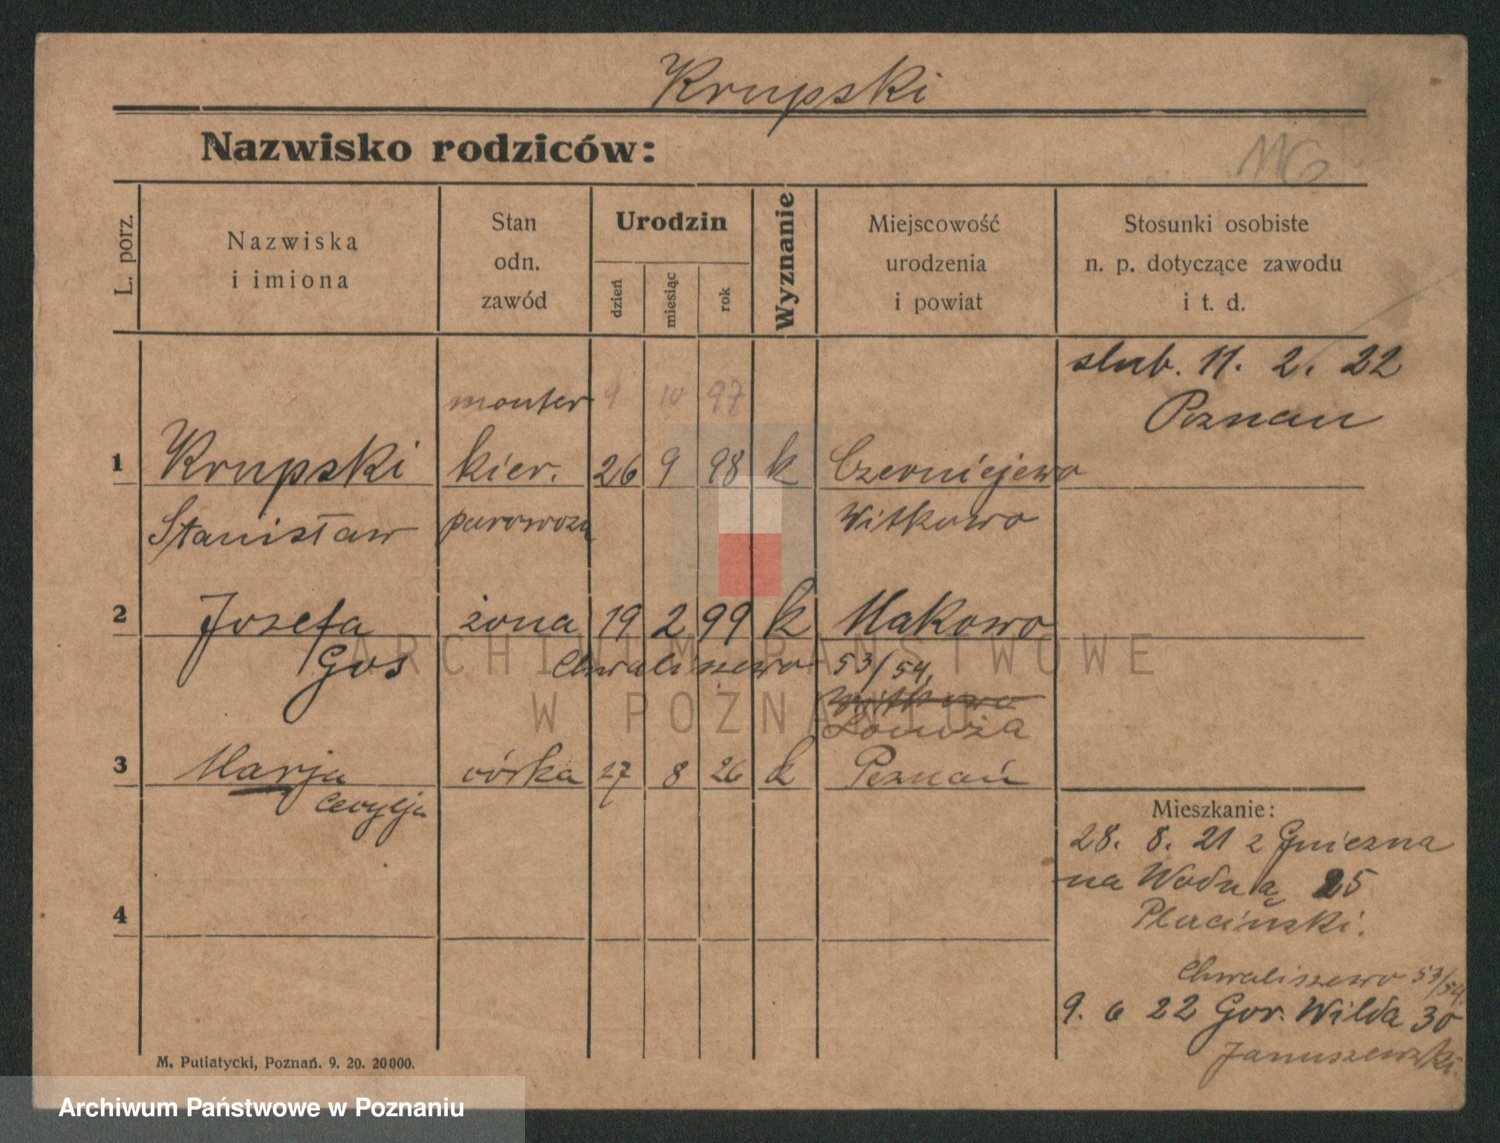 Krupski
Nazwisko rodziców:
116
L. porz.
Nazwiska
i imiona
Stan
odn.
zawód
Urodzin
dzień
miesiąc
rok
Wyznanie
Miejscowość
urodzenia
i powiat
Stosunki osobiste
n. p. dotyczące zawodu
i t. d.
ślub. 11. 2. 22
Poznan
monter 9 10 97
1 Krupski kier. 26 9 98 k Czerniejewo
Stanisław parowozu Witkowo
2 Jozefa żona 19 2 99 k Makowo
Gos Chwaliszewo 53/54,
Witkowo
Łomża
3 Marja córka 27 8 26 k Poznań
Cecylja
4
Mieszkanie:
28. 8. 21 z Gniezna
na Wodną 25
Placiński.
Chwaliszewo 53/54.
9. 6 22 Gor. Wilda 30
Januszewski.
M. Putiatycki, Poznań. 9. 20. 20000.
ARCHIWUM PAŃSTWOWE
W POZNANIU
Archiwum Państwowe w Poznaniu